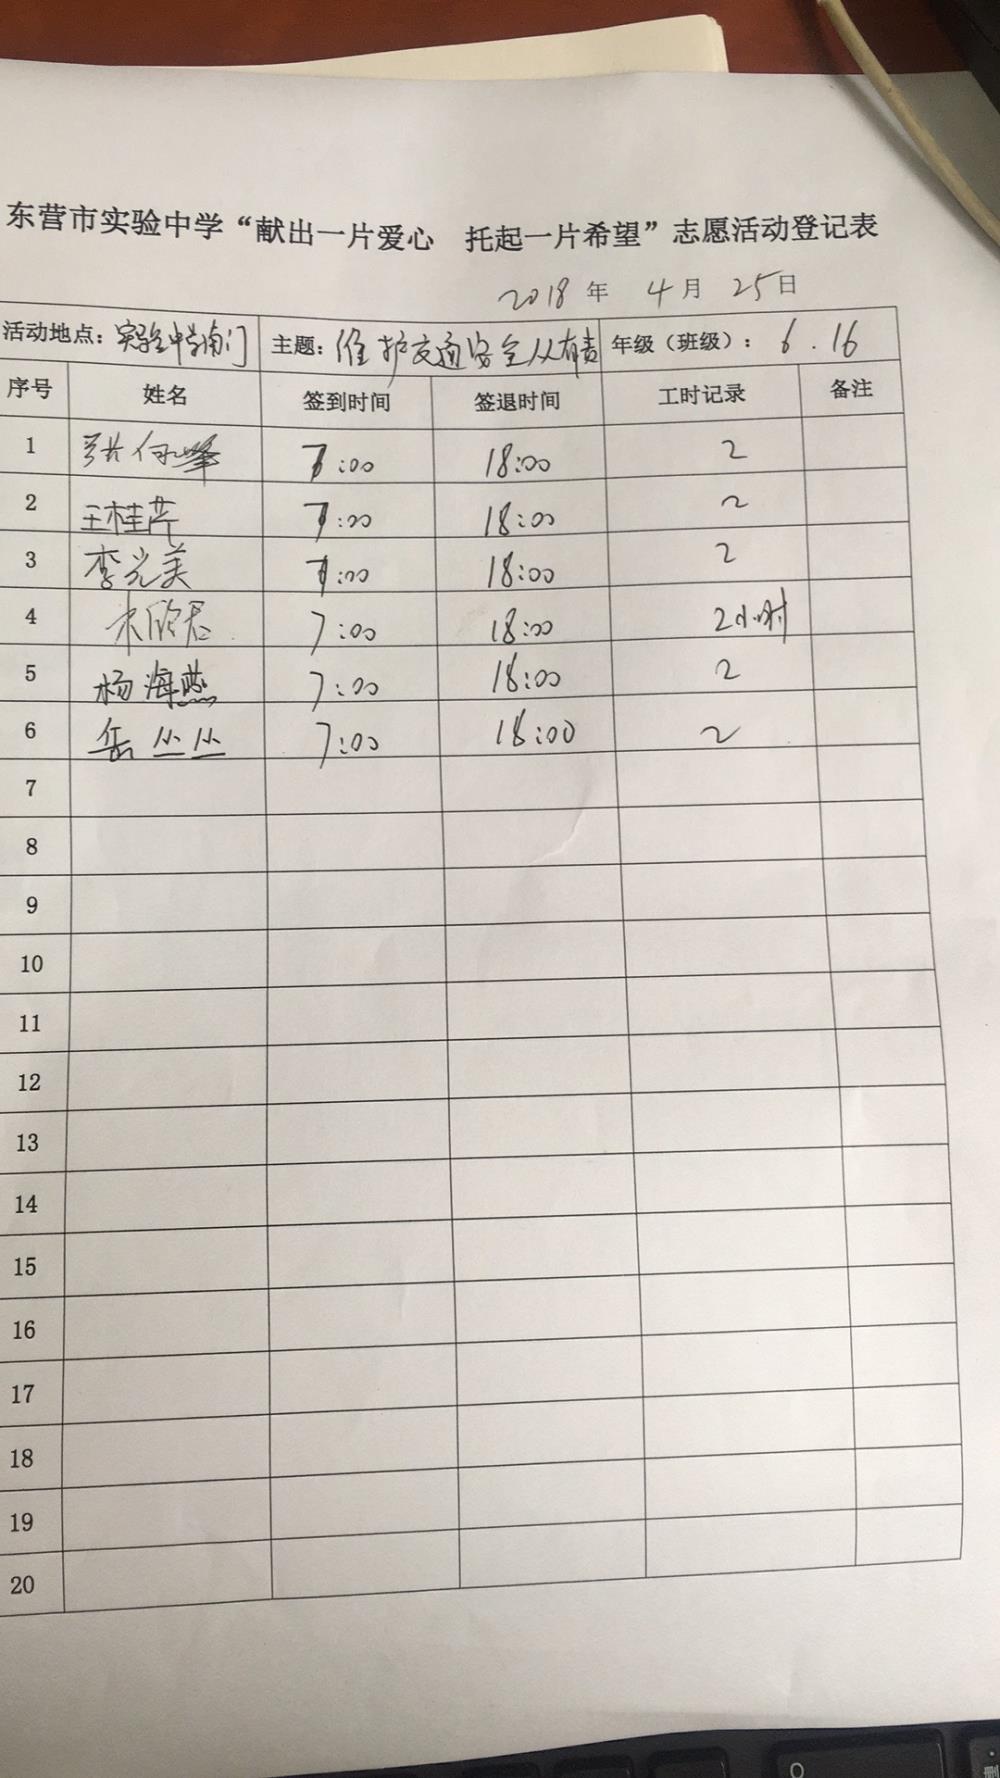 东营市实验中学“献出一片爱心 托起一片希望”志愿活动登记表
2018 年 4 月 25 日
活动地点：实验中学南门 主题：维护交通安全人人有责 年级（班级）： 6.16
序号 姓名 签到时间 签退时间 工时记录 备注
1 7:00 18:00 2
2 王桂芹 7:00 18:00 2
3 李光美 7:00 18:00 2
4 7:00 18:00 2小时
5 杨海燕 7:00 18:00 2
6 岳丛丛 7:00 18:00 2
7
8
9
10
11
12
13
14
15
16
17
18
19
20